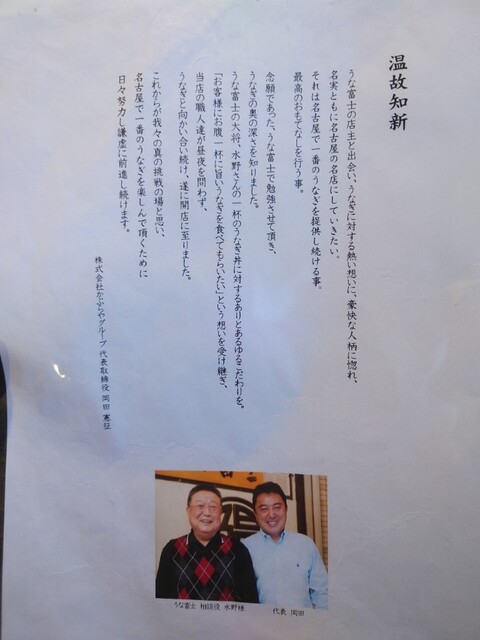 温故知新
うな富士の店主と出会い、うなぎに対する熱い想いに、豪快な人柄に惚れ、
名実ともに名古屋の名店にしていきたい。
それは名古屋で一番のうなぎを提供し続ける事。
最高のおもてなしを行う事。
念願であった、うな富士で勉強させて頂き、
うなぎの奥の深さを知りました。
うな富士の大将、水野さんの一杯のうなぎ丼に対するありとあらゆるこだわりを。
「お客様にお腹一杯に旨いうなぎを食べてもらいたい」という想いを受け継ぎ、
当店の職人達が昼夜を問わず、
うなぎと向かい合い続け、遂に開店に至りました。
これからが我々の真の挑戦の場と思い、
名古屋で一番のうなぎを楽しんで頂くために
日々努力し謙虚に前進し続けます。
株式会社かぶらやグループ 代表取締役 岡田 憲征
うな富士 相談役 水野様
代表 岡田